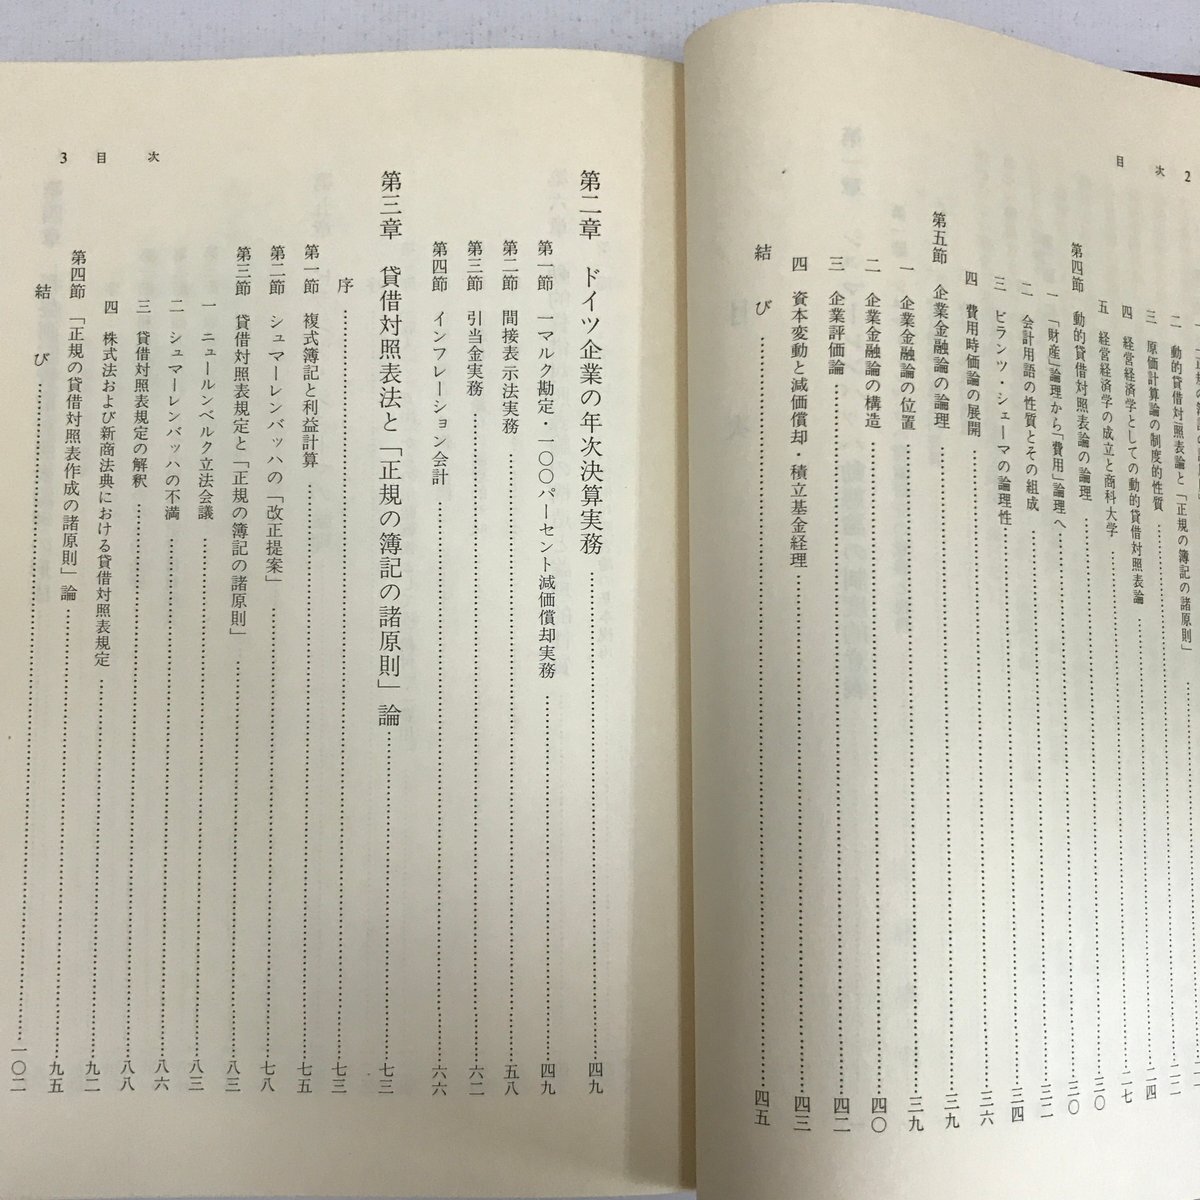 目次 2
二 動的貸借対照表論と「正規の簿記の諸原則」
三 原価計算論の制度的性質……二四
四 経営経済学としての動的貸借対照表論……二七
五 経営経済学の成立と商科大学……三〇
第四節 動的貸借対照表論の論理……三〇
一 「財産」論理から「費用」論理へ……三二
二 会計用語の性質とその組成……三四
三 ビランツ・シェーマの論理性……三六
四 費用時価論の展開
第五節 企業金融論の論理……三九
一 企業金融論の位置……三九
二 企業金融論の構造……四〇
三 企業評価論……四二
四 資本変動と減価償却・積立基金経理……四三
結び……四五
3 目次
第二章 ドイツ企業の年次決算実務……四九
第一節 一マルク勘定・一〇〇パーセント減価償却実務……四九
第二節 間接表示法実務……五八
第三節 引当金実務……六二
第四節 インフレーション会計……六六
第三章 貸借対照表法と「正規の簿記の諸原則」論……七三
序……七三
第一節 複式簿記と利益計算……七五
第二節 シュマーレンバッハの「改正提案」……七八
第三節 貸借対照表規定と「正規の簿記の諸原則」……八三
一 ニュールンベルク立法会議……八三
二 シュマーレンバッハの不満……八六
三 貸借対照表規定の解釈……八八
四 株式法および新商法典における貸借対照表規定……九二
第四節 「正規の貸借対照表作成の諸原則」論……九五
結び……一〇二